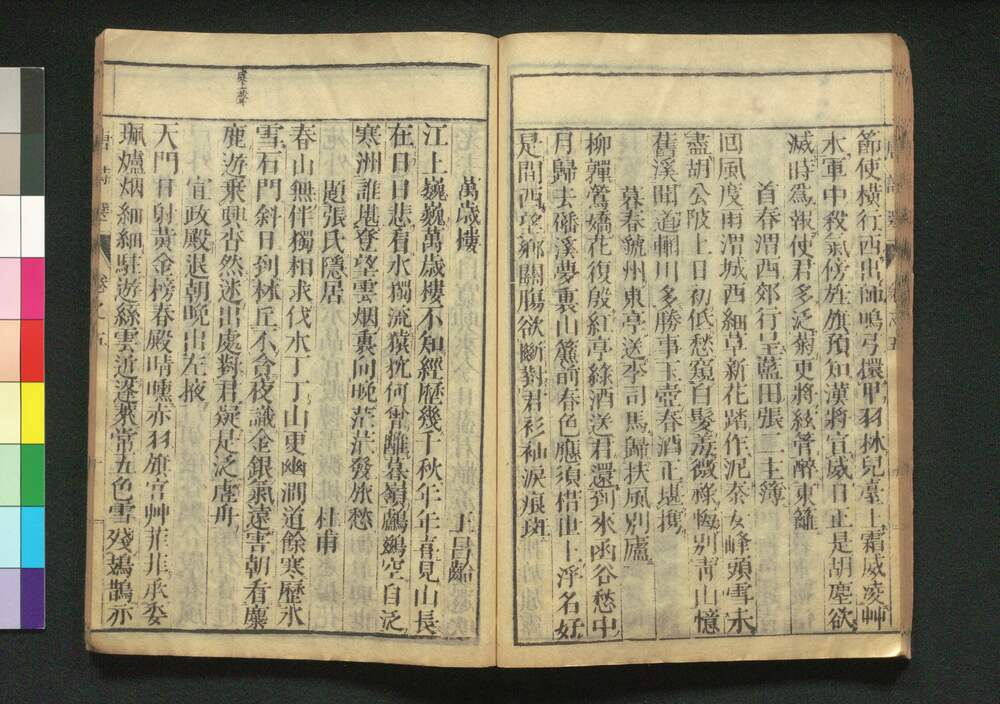 節使橫行西出師鳴弓擐甲羽林兒臺上霜威凌艸
木軍中殺氣傍旌旗預知漢將宣威日正是胡塵欲
滅時爲報使君多泛菊更將絃管醉東籬
首春渭西郊行呈藍田張二主簿
回風度雨渭城西細草新花踏作泥秦女峰頭雪未
盡胡公陂上日初低愁窺白髮羞微祿悔別靑山憶
舊溪聞道輞川多勝事玉壺春酒正堪攜
暮春虢州東亭送李司馬歸扶風別廬
柳嚲鶯嬌花復殷紅亭綠酒送君還到來函谷愁中
月歸去磻溪夢裏山簾前春色應須惜世上浮名好
是閒西望鄉關膓欲斷對君衫袖淚痕斑
萬歲樓
王昌齡
江上巍巍萬歲樓不知經歷幾千秋年年喜見山長
在日日悲看水獨流猿狖何曾離暮嶺鸕鷀空自泛
寒洲誰堪登望雲烟裏向晚茫茫發旅愁
題張氏隱居
杜甫
春山無伴獨相求伐木丁丁山更幽澗道餘寒歷氷
雪石門斜日到林丘不貪夜識金銀氣遠害朝看麋
鹿遊乘興杳然迷出處對君疑是泛虛舟
宣政殿退朝晚出左掖
天門日射黃金榜春殿晴曛赤羽旗宮艸菲菲承委
珮爐烟細細駐遊絲雲近蓬萊常五色雪殘鳷鵲亦
唐詩選
卷之五